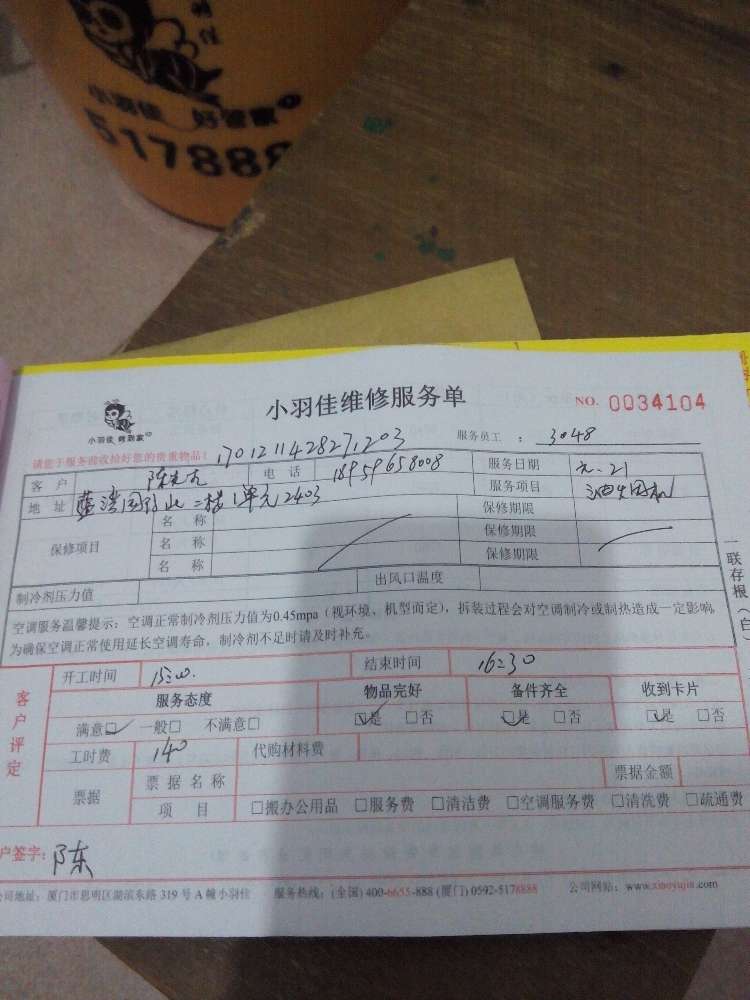 小羽佳 好管家
517888
小羽佳维修服务单
NO. 0034104
小羽佳 帮到家
请您于服务前收拾好您的贵重物品!
1701211428271203
服务员工 : 3048
客户 电话 18959658008 服务日期 元.21
地址 2403 服务项目 油烟机
保修项目 名称 保修期限
名称 保修期限
名称 保修期限
制冷剂压力值 出风口温度
空调服务温馨提示:空调正常制冷剂压力值为0.45mpa(视环境、机型而定),拆装过程会对空调制冷或制热造成一定影响,
为确保空调正常使用延长空调寿命,制冷剂不足时请及时补充。
一联存根(白)
客户评定
开工时间 15:00 结束时间 16:30
服务态度 物品完好 备件齐全 收到卡片
满意☑ 一般□ 不满意□ ☑是 □否 ☑是 □否 ☑是 □否
工时费 140 代购材料费
票据 票据名称 票据金额
项目 □搬办公用品 □服务费 □清洁费 □空调服务费 □清洗费 □疏通费
户签字: 陈
公司地址:厦门市思明区湖滨东路 319 号 A 幢小羽佳 服务热线:(全国) 400-6655-888 (厦门) 0592-5178888 公司网站:www.xiaoyujia.com